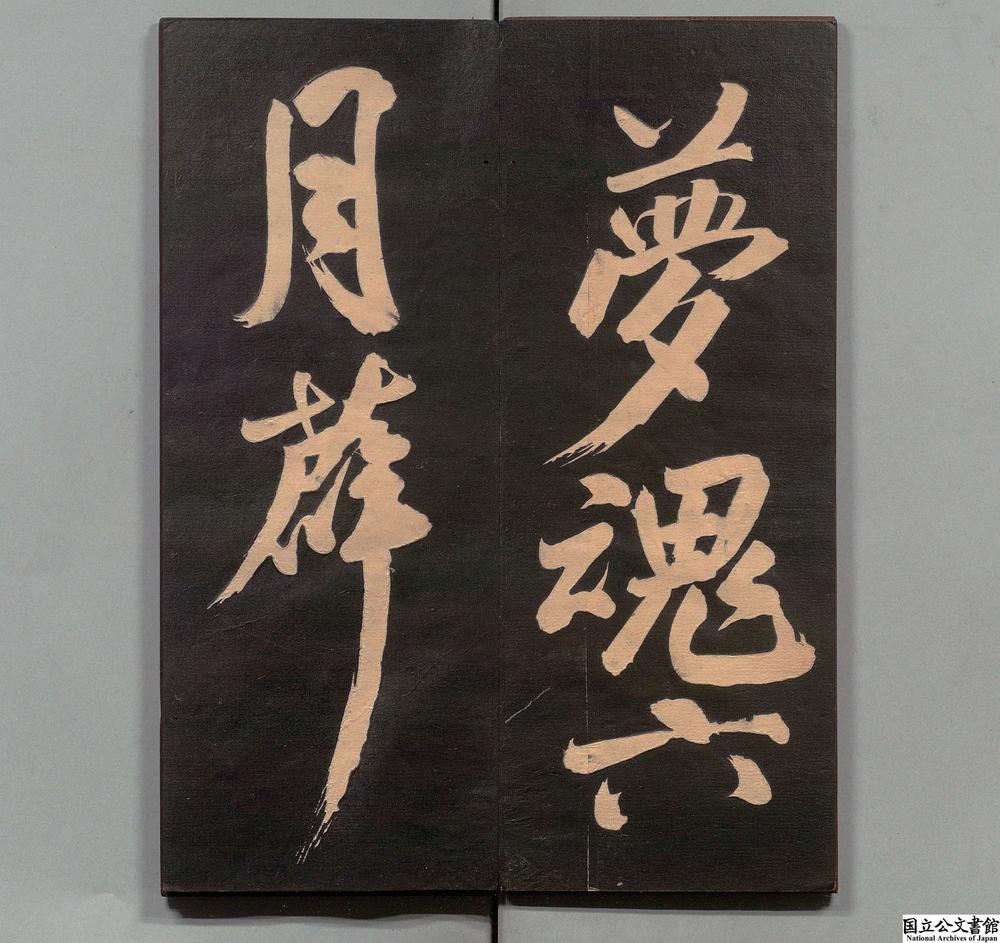 夢魂六
月薜
国立公文書館
National Archives of Japan